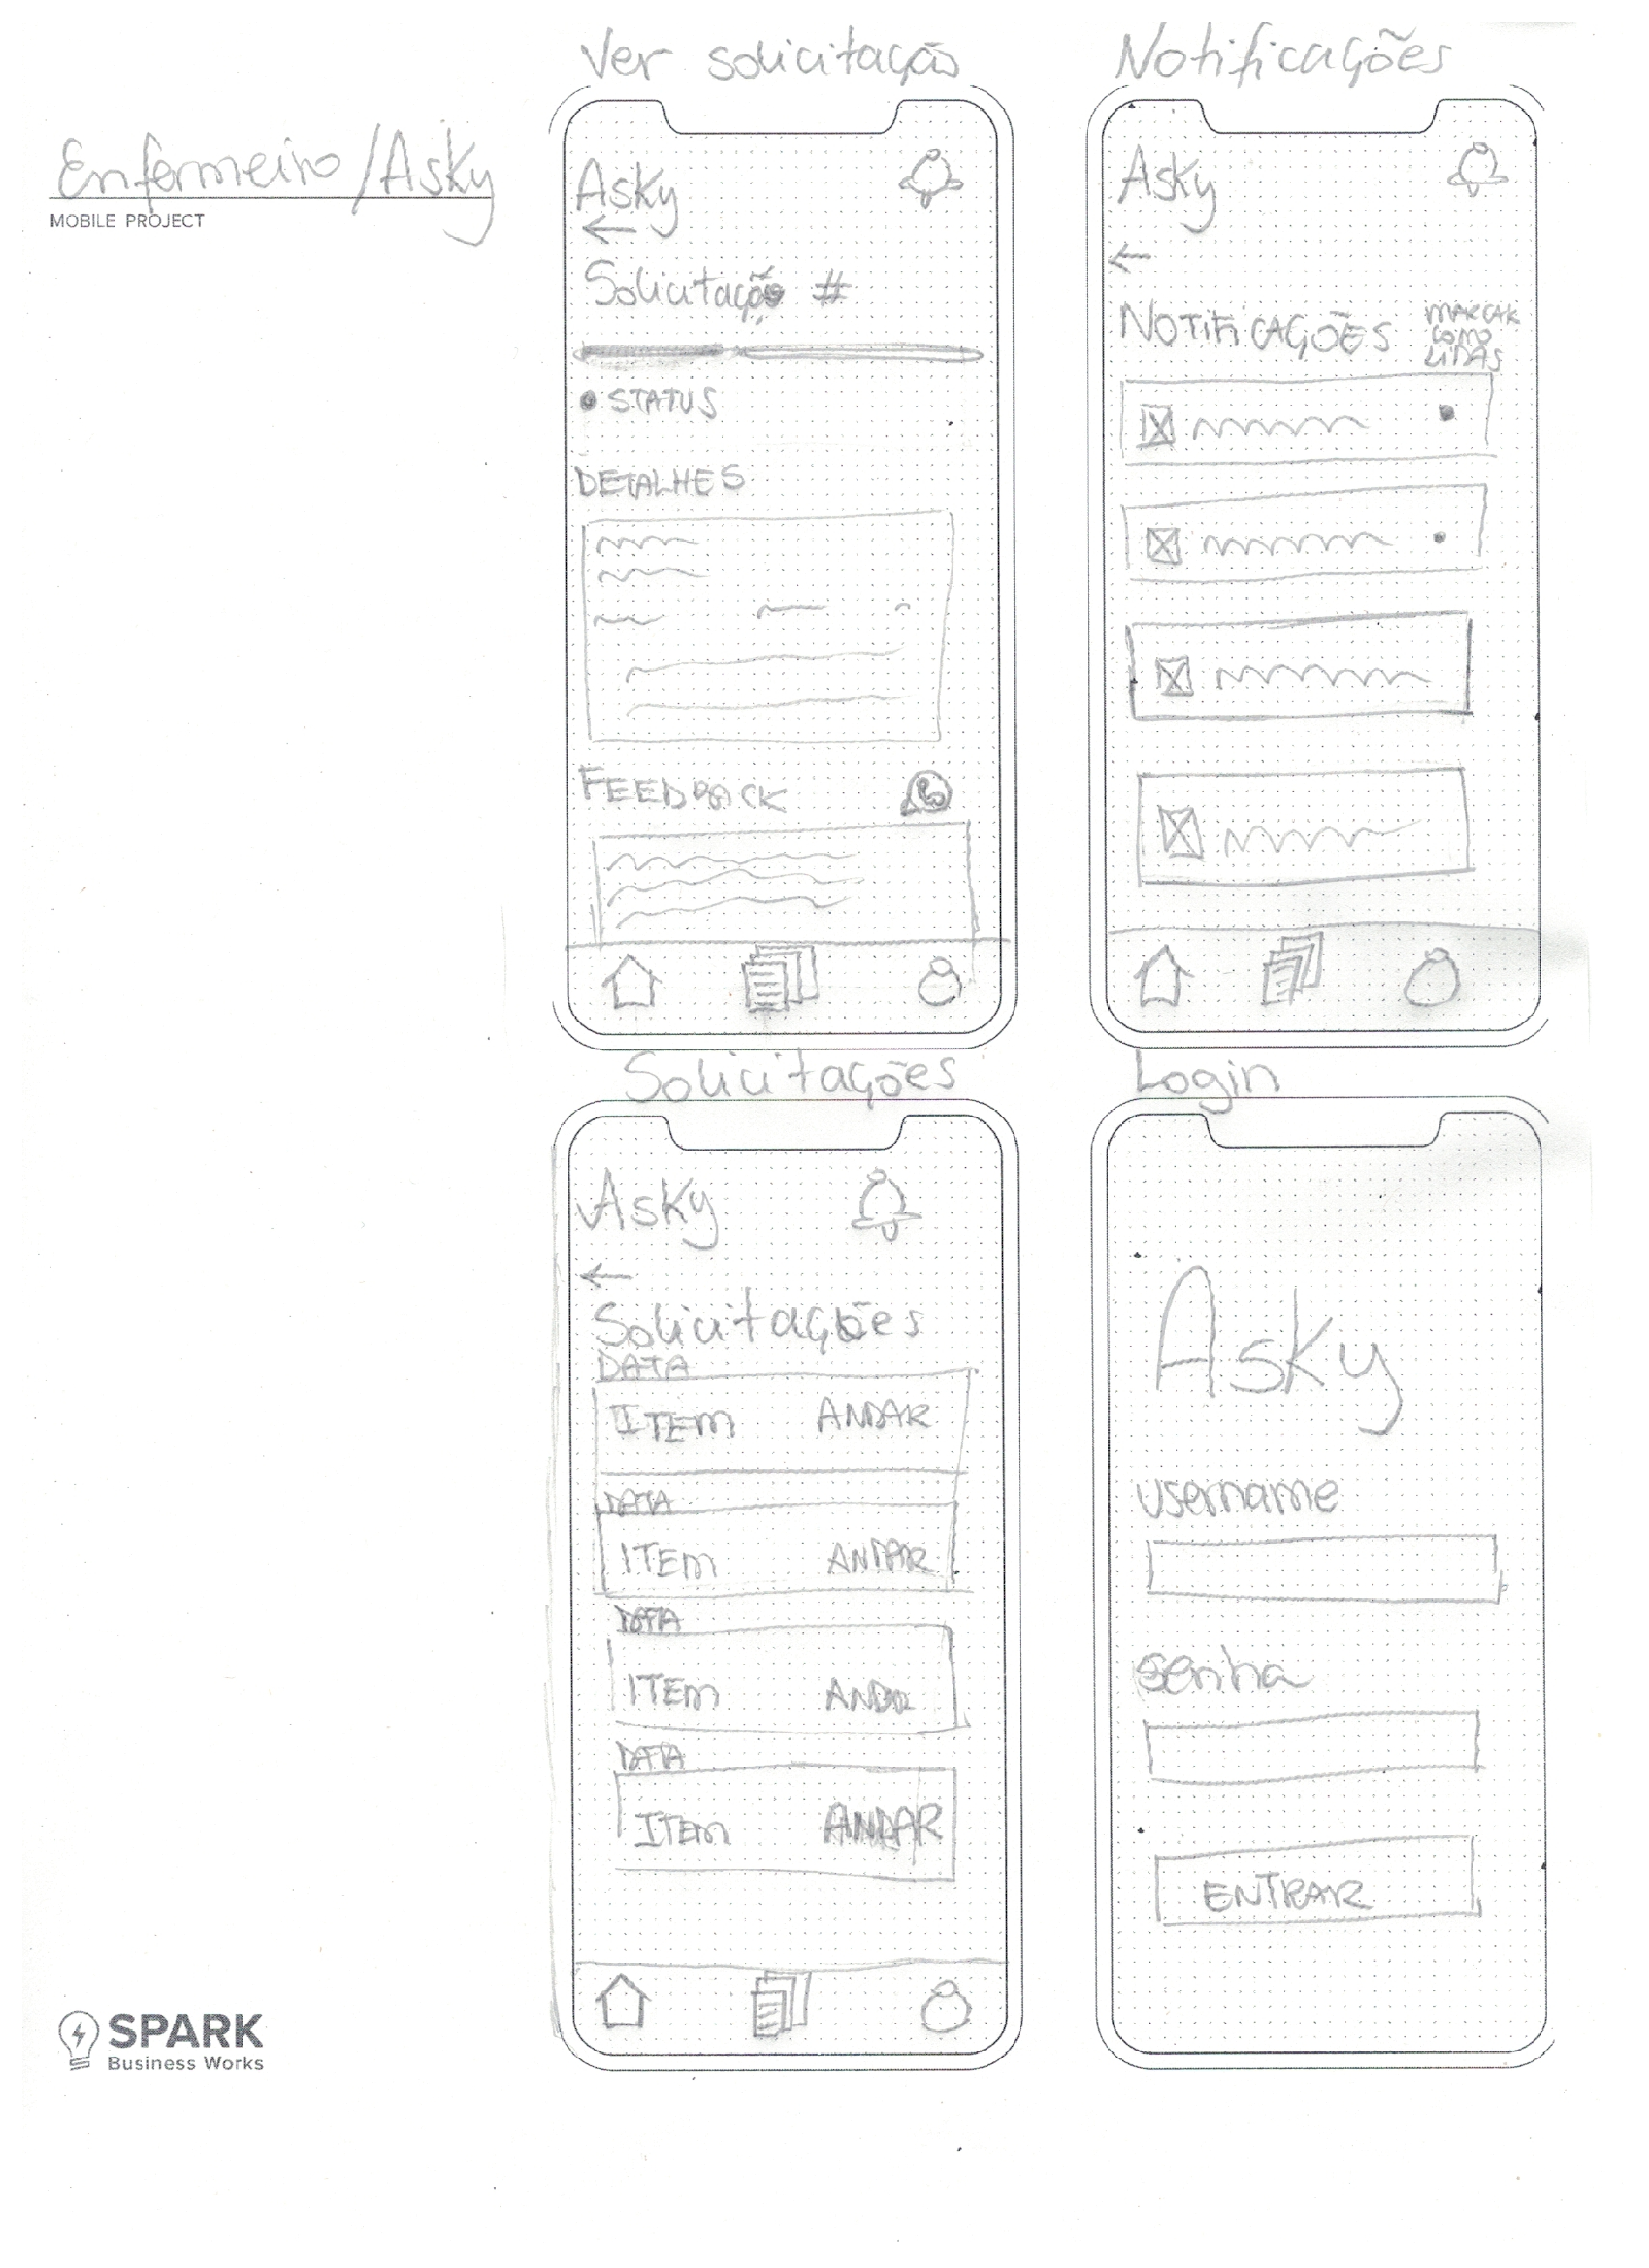 Enfermeiro/Asky
MOBILE PROJECT
Ver solicitação
Asky
Solicitação #
STATUS
DETALHES
FEEDBACK
Notificações
Asky
NOTIFICAÇÕES
MARCAR
COMO
LIDAS
Solicitações
Asky
Solicitações
DATA
ITEM ANDAR
DATA
ITEM ANDAR
DATA
ITEM ANDAR
DATA
ITEM ANDAR
Login
Asky
username
senha
ENTRAR
SPARK
Business Works